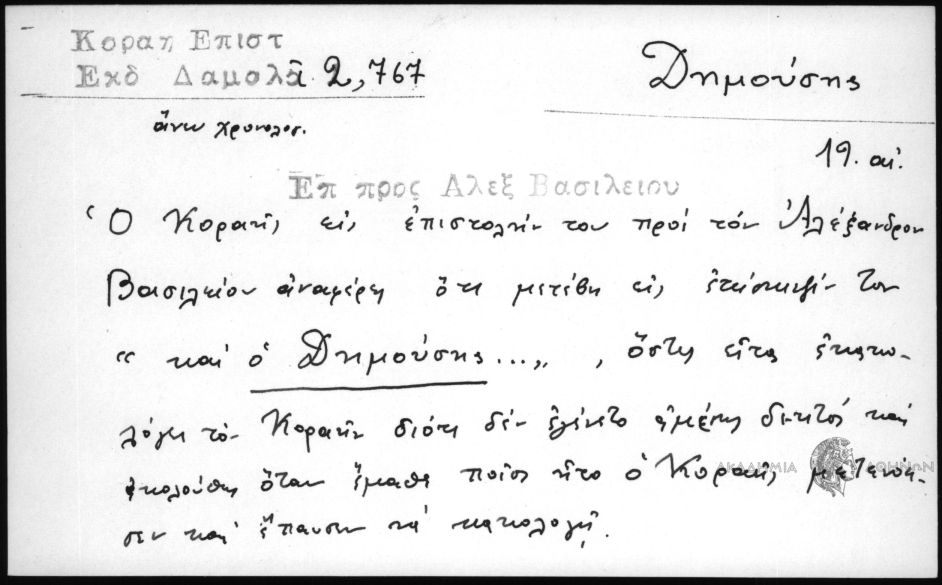 Κοραη Επιστ
Εκδ Δαμαλᾶ 2,767
Δημούσης
ἄνευ χρονολογ.
19. αἰ.
Επ προς Αλεξ Βασιλειου
Ὁ Κοραῆς εἰς ἐπιστολήν του πρός τόν Ἀλέξανδρον
Βασιλείου ἀναφέρει ὅτι μετέβη εἰς ἐπίσκεψίν του
“ καί ὁ Δημούσης...„ , ὅστις εἶτα ἐκατη-
λόγει τόν Κοραῆν διότι δέν ἐγένετο ἀμέσως δεκτός καί
ἀκολούθως ὅταν ἔμαθε ποῖος ἦτο ὁ Κοραῆς μετενόη-
σεν καί ἔπαυσεν νά κακολογῇ.
ΑΚΑΔΗΜΙΑ ΑΘΗΝΩΝ